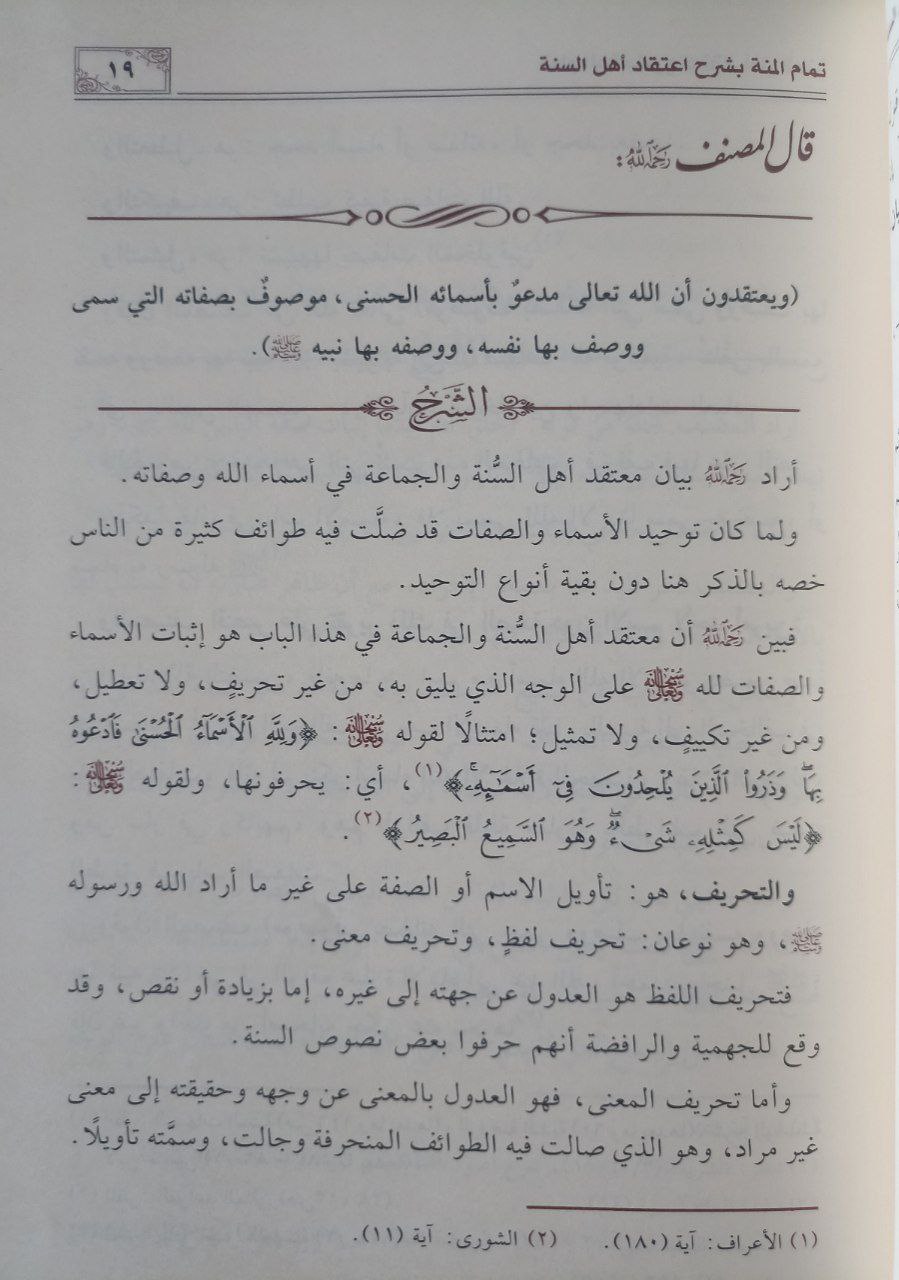 تمام المنة بشرح اعتقاد أهل السنة
١٩
قال المصنف رَحِمَهُ اللَّهُ:
(ويعتقدون أن الله تعالى مدعوٌ بأسمائه الحسنى، موصوفٌ بصفاته التي سمى
ووصف بها نفسه، ووصفه بها نبيه ﷺ).
الشَّرْحُ
أراد رَحِمَهُ اللَّهُ بيان معتقد أهل السُّنة والجماعة في أسماء الله وصفاته.
ولما كان توحيد الأسماء والصفات قد ضلَّت فيه طوائف كثيرة من الناس
خصه بالذكر هنا دون بقية أنواع التوحيد.
فبين رَحِمَهُ اللَّهُ أن معتقد أهل السُّنة والجماعة في هذا الباب هو إثبات الأسماء
والصفات لله سُبْحَانَهُ وَتَعَالَى على الوجه الذي يليق به، من غير تحريفٍ، ولا تعطيل،
ومن غير تكييفٍ، ولا تمثيل؛ امتثالًا لقوله سُبْحَانَهُ وَتَعَالَى: ﴿وَلِلَّهِ ٱلْأَسْمَآءُ ٱلْحُسْنَىٰ فَٱدْعُوهُ
بِهَاۖ وَذَرُوا۟ ٱلَّذِينَ يُلْحِدُونَ فِىٓ أَسْمَـٰٓئِهِۦۚ﴾(١)، أي: يحرفونها، ولقوله سُبْحَانَهُ وَتَعَالَى:
﴿لَيْسَ كَمِثْلِهِۦ شَىْءٌۖ وَهُوَ ٱلسَّمِيعُ ٱلْبَصِيرُ﴾(٢).
والتحريف، هو: تأويل الاسم أو الصفة على غير ما أراد الله ورسوله
ﷺ، وهو نوعان: تحريف لفظٍ، وتحريف معنى.
فتحريف اللفظ هو العدول عن جهته إلى غيره، إما بزيادة أو نقص، وقد
وقع للجهمية والرافضة أنهم حرفوا بعض نصوص السنة.
وأما تحريف المعنى، فهو العدول بالمعنى عن وجهه وحقيقته إلى معنى
غير مراد، وهو الذي صالت فيه الطوائف المنحرفة وجالت، وسمَّته تأويلًا.
(١) الأعراف: آية (١٨٠). (٢) الشورى: آية (١١).